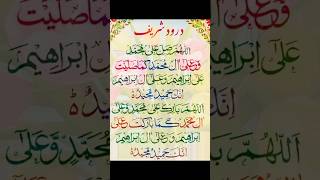 درود شریف
اَللّٰهُمَّ صَلِّ عَلٰى مُحَمَّدٍ
وَّعَلٰٓى اٰلِ مُحَمَّدٍ كَمَا صَلَّيْتَ
عَلٰٓى اِبْرَاهِيْمَ وَعَلٰٓى اٰلِ اِبْرَاهِيْمَ
اِنَّكَ حَمِيْدٌ مَّجِيْدٌ
اَللّٰهُمَّ بَارِكْ عَلٰى مُحَمَّدٍ وَّعَلٰٓى
اٰلِ مُحَمَّدٍ كَمَا بَارَكْتَ وَعَلٰٓى
اِبْرَاهِيْمَ وَعَلٰٓى اٰلِ اِبْرَاهِيْمَ
اِنَّكَ حَمِيْدٌ مَّجِيْدٌ